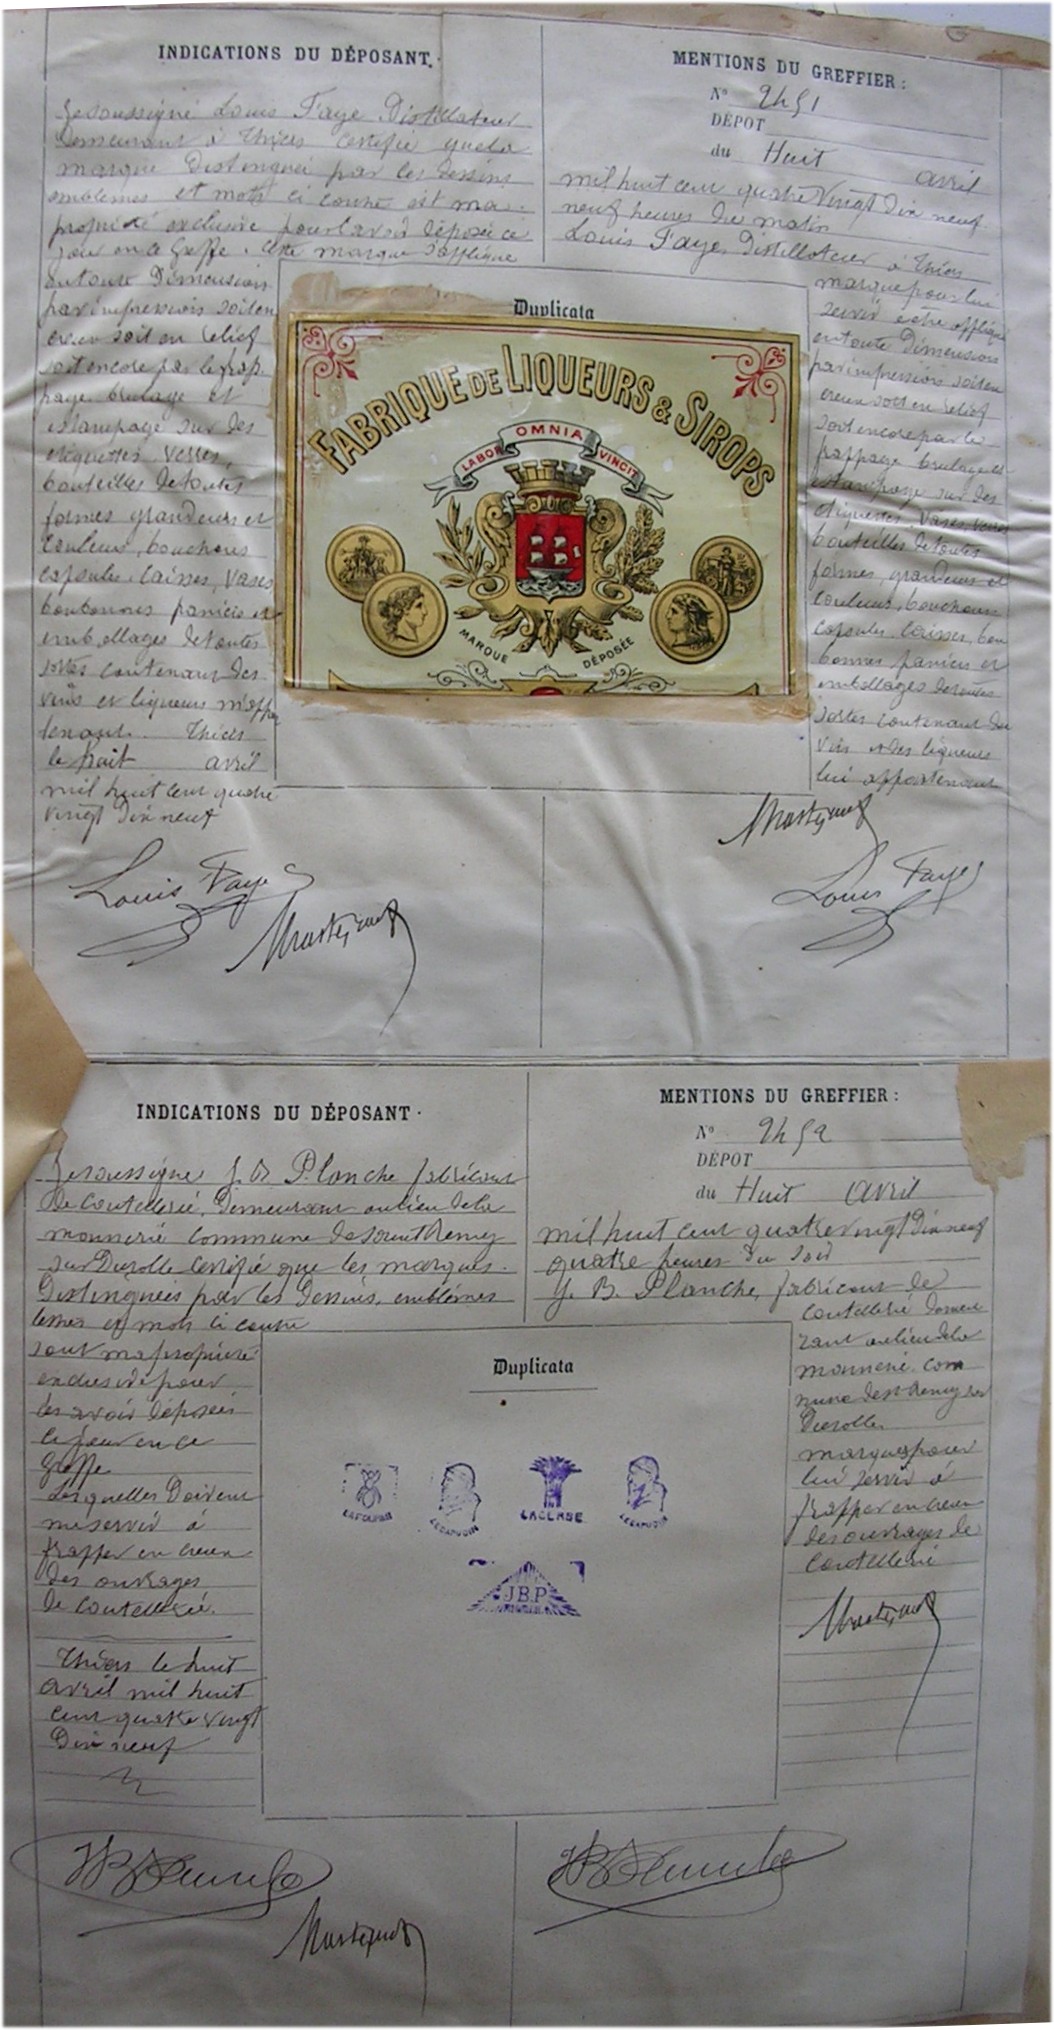 INDICATIONS DU DÉPOSANT.
Je soussigné Louis Faye Distillateur
Demeurant à Thiers certifie que la
marque Distinguée par les dessins
emblèmes et mots ci contre est ma
propriété exclusive pour l'avoir déposée ce
jour en ce Greffe. Cette marque s'applique
en toute Dimension
par impression soit en
creux soit en relief
soit encore par le frap
page brulage et
estampage sur des
etiquettes, verres,
bouteilles de toutes
formes grandeurs et
couleurs, bouchons
capsules, caisses, vases
bonbonnes paniers et
emballages de toutes
sortes contenant des
vins et liqueurs m'appar
tenant. Thiers
le huit avril
mil huit cent quatre
vingt dix neuf
Louis Faye
MENTIONS DU GREFFIER :
N° 2451
DÉPOT
du Huit avril
mil huit cent quatre Vingt dix neuf
neuf heures du matin
Louis Faye, Distillateur à Thiers
marque pour lui
servir à être appliquée
en toute Dimension
par impression soit en
creux soit en relief
soit encore par le
frappage brulage et
estampage sur des
étiquettes, vases, verres
bouteilles de toutes
formes, grandeurs et
couleurs, bouchons
capsules, caisses, bon
bonnes paniers et
emballages de toutes
sortes contenant des
vins et des liqueurs
lui appartenant
Louis Faye
Duplicata
FABRIQUE DE LIQUEURS & SIROPS
LABOR OMNIA VINCIT
MARQUE DÉPOSÉE
INDICATIONS DU DÉPOSANT.
Je soussigné J. B. Planche fabricant
de coutellerie, Demeurant au lieu de la
monnerie commune de Saint Remy
sur Durolle certifie que les marques
Distinguées par les Dessins, emblèmes
lettres et mots ci contre
sont ma propriété
exclusive pour
les avoir déposées
ce jour en ce
Greffe
Lesquelles Doivent
me servir à
frapper en creux
des ouvrages
de coutellerie.
Thiers le huit
avril mil huit
cent quatre vingt
Dix neuf
MENTIONS DU GREFFIER :
N° 2452
DÉPOT
du Huit avril
mil huit cent quatre vingt Dix neuf
quatre heures du soir
J. B. Planche, fabricant de
coutellerie demeu
rant au lieu de la
monnerie com
mune de St Remy sur
Durolle
marques pour
lui servir à
frapper en creux
des ouvrages de
coutellerie
Duplicata
LE CAPUCIN
LA GERBE
LE CAPUCIN
J.B.P